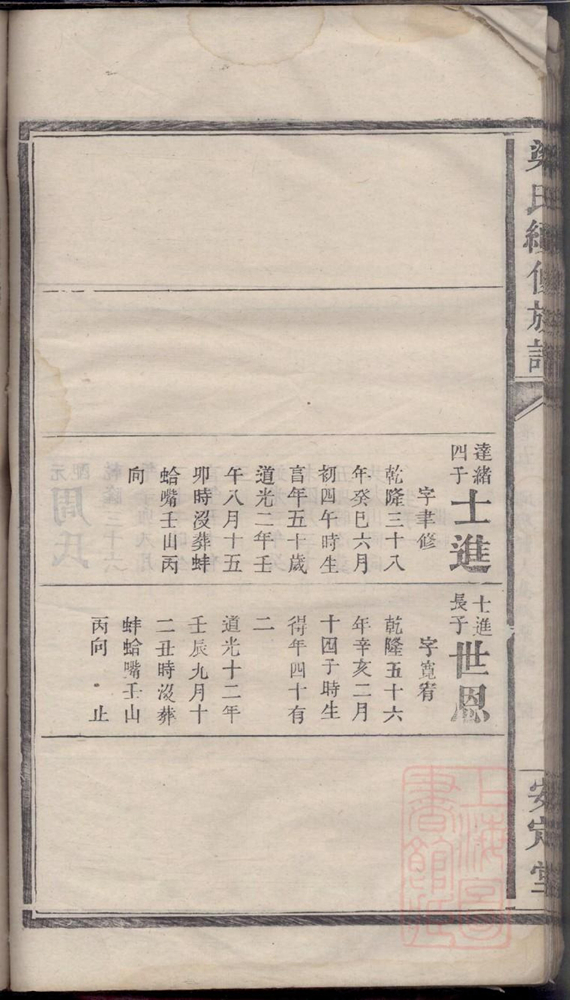 梁氏續修族譜
達緒
四子
士進
字聿修
乾隆三十八
年癸巳六月
初四午時生
言年五十歲
道光二年壬
午八月十五
卯時沒葬蚌
蛤嘴壬山丙
向
士進
長子
世恩
字寬宥
乾隆五十六
年辛亥二月
十四子時生
得年四十有
二
道光十二年
壬辰九月十
二丑時沒葬
蚌蛤嘴壬山
丙向 止
安定堂
上海圖
書館藏
周氏